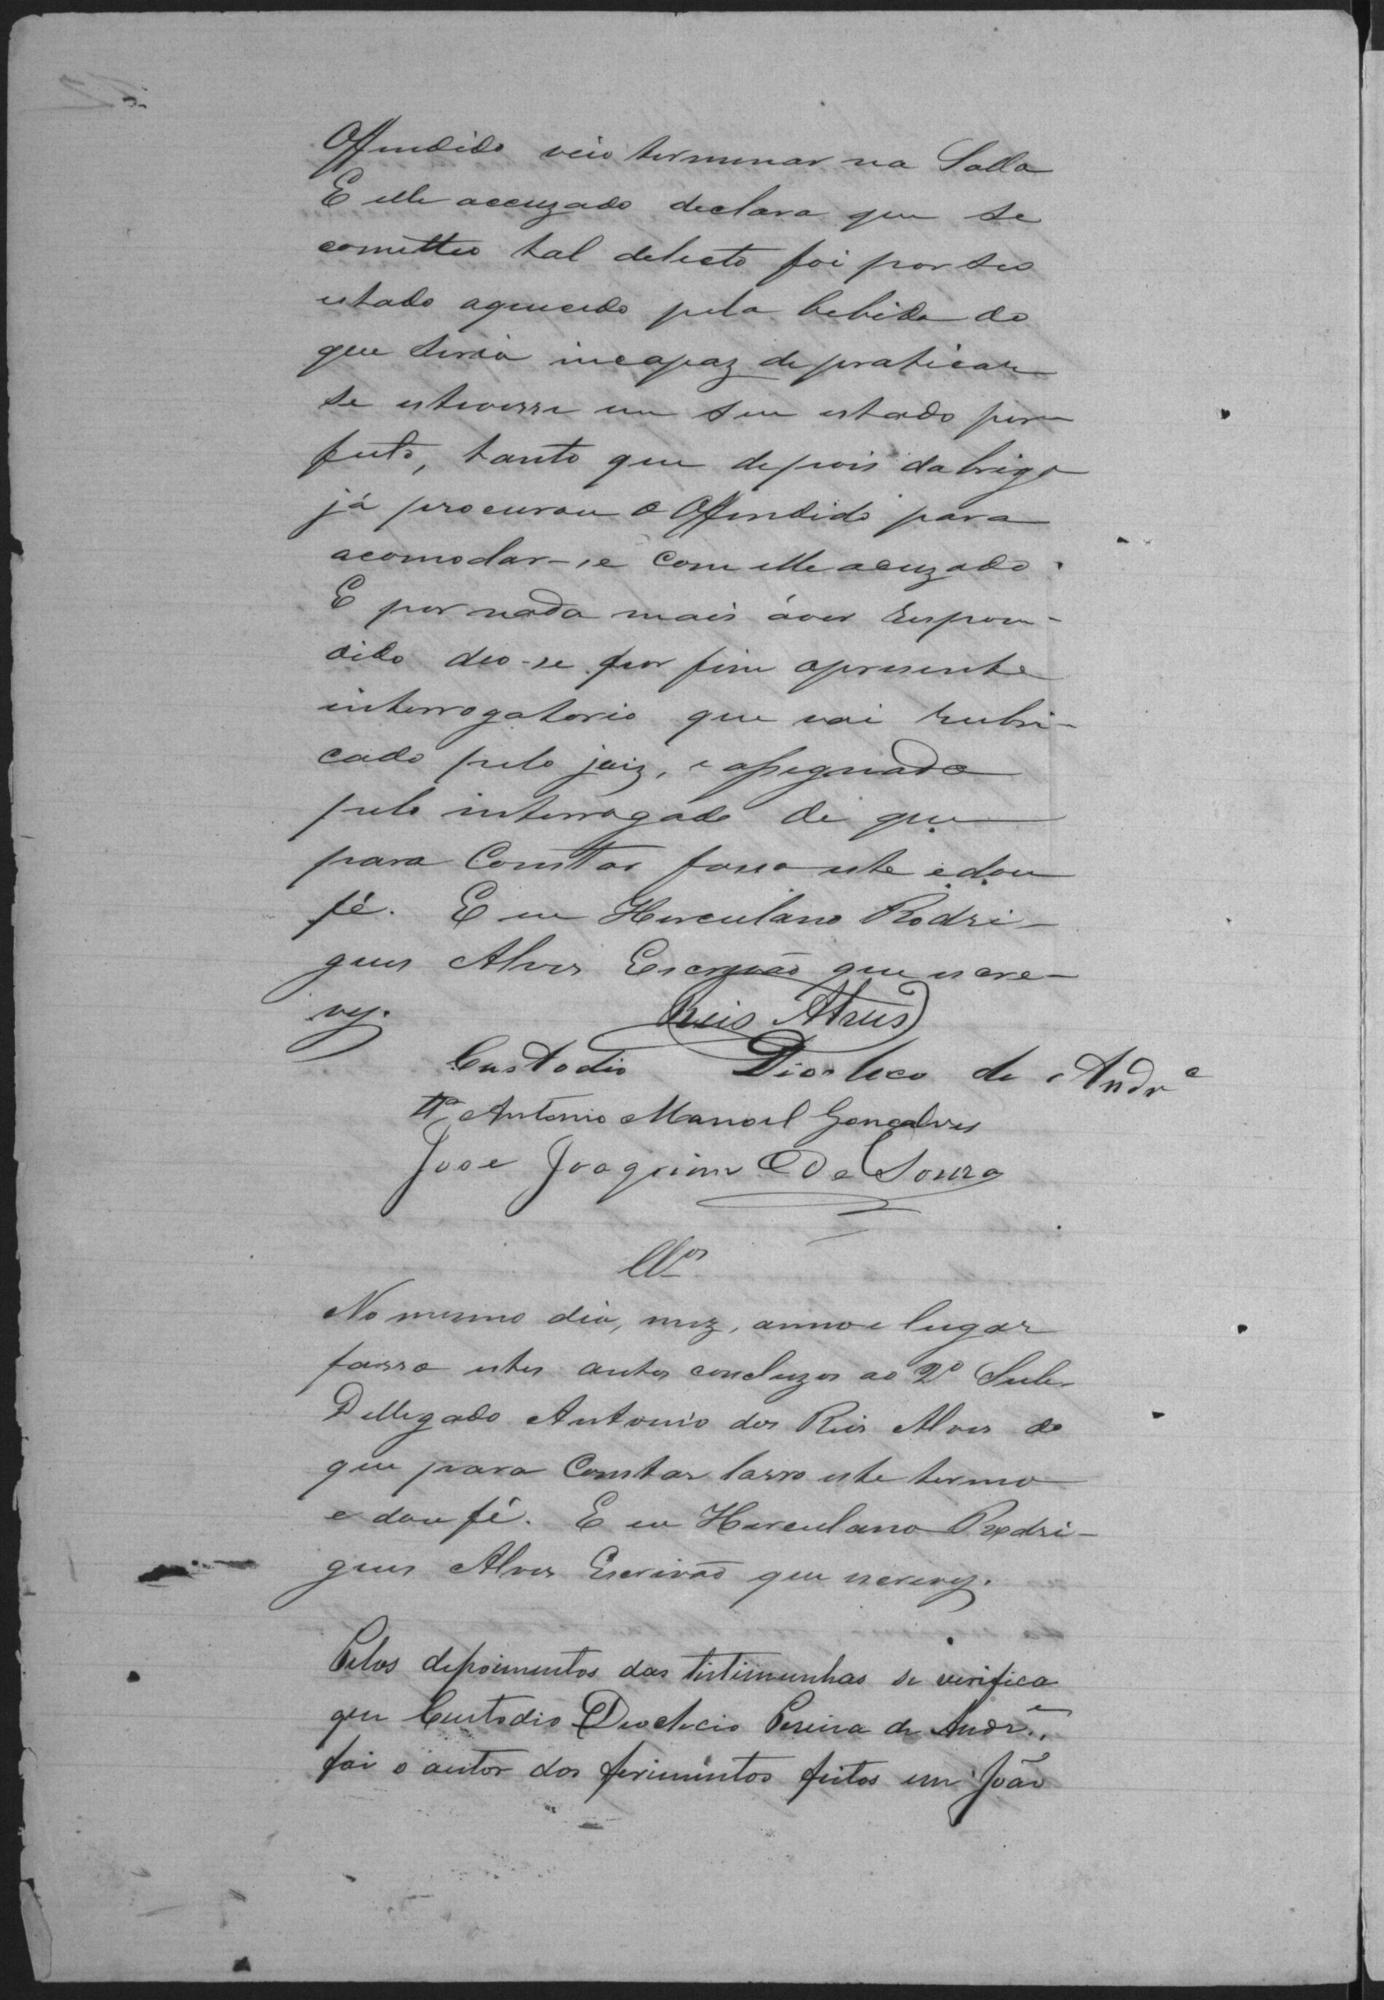 Offendido veio terminar na Salla
E elle accuzado declara que se
cometteo tal delicto foi por seo
estado aquecido pela bebida do
que seria incapaz de praticar
se estivesse em seu estado per
feito, tanto que depois da briga
já procurou o Offendido para
acomodar-se com elle acuzado.
E por nada mais áver respon-
dido deo-se por fim apresente
interrogatorio que vai rubri-
cado pelo juiz, e assignado
pelo interrogado de que
para Constar fasso este e dou
fé. E eu Herculano Rodri-
gues Alves Escrivão que escre-
vy.
Reis Alves
Custodio Diocleco de Andre
Ta Antonio Manoel Gonçalves
Jose Joaquim De Souza
Clos
No mesmo dia, mez, anno e lugar
fasso estes autos concluzos ao 2º Sub
Dellegado Antonio dos Reis Alves do
que para Constar lasso este termo
e dou fé. E eu Herculano Rodri-
gues Alves Escrivão que escrevy.
Pelos depoimentos das testimunhas se verifica
que Custodio Deoclecio Pereira de Andre.,
foi o autor dos ferimentos feitos em João